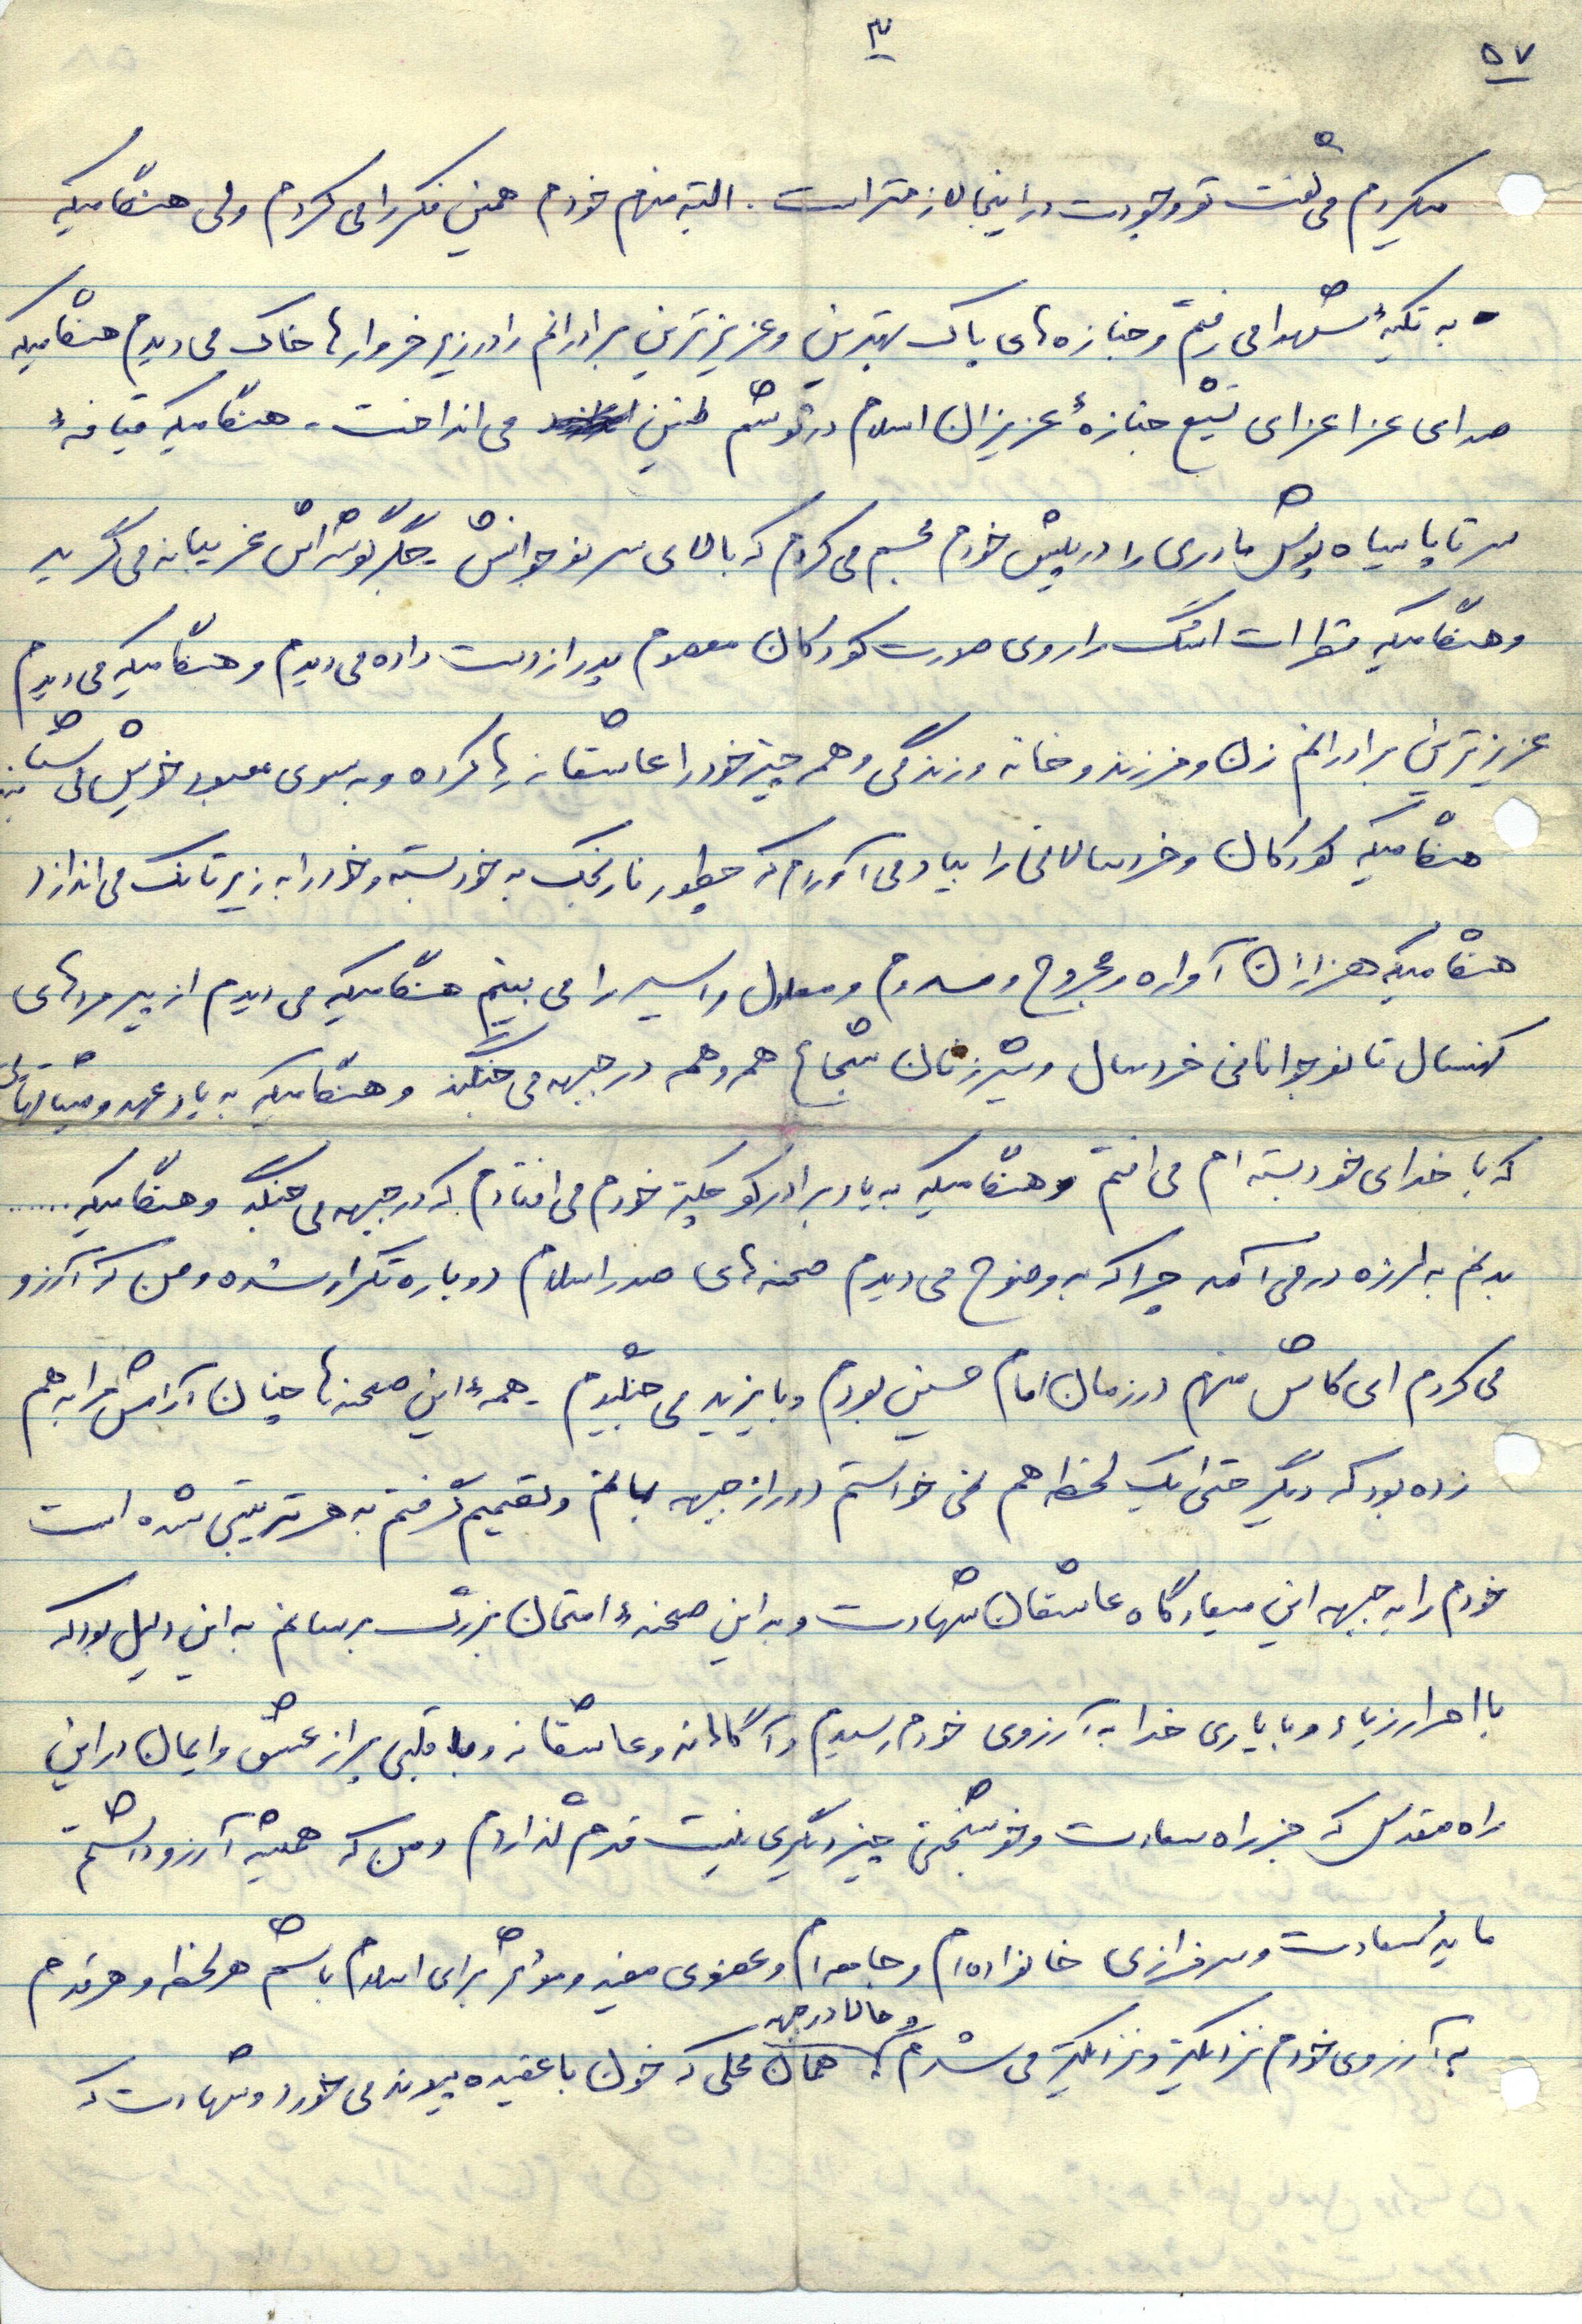 ۵۷
۳
میکردم می گفت تو وجودت در اینجا لازمتر است. البته منهم خودم همین فکر را می کردم ولی هنگامیکه
به تکیهٔ شهدا می رفتم و جنازه های پاک بهترین و عزیزترین برادرانم را در زیر خروارها خاک می دیدم هنگامیکه
صدای عزا عزای تشیع جنازهٔ عزیزان اسلام در گوشم طنین می انداخت - هنگامیکه قیافهٔ
سر تا پا سیاه پوش مادری را در پیش خودم مجسم می کردم که بالای سر نوجوانش - جگرگوشه اش غریبانه می گرید
و هنگامیکه قطرات اشک را روی صورت کودکان معصوم پدر از دست داده می دیدم و هنگامیکه می دیدم
عزیزترین برادرانم زن و فرزند و خانه و زندگی و همه چیز خود را عاشقانه رها کرده و به سوی معبود خویش می شتابند
هنگامیکه کودکان و خردسالانی را بیاد می آوردم که چطور نارنجک به خود بسته و خود را به زیر تانک می اندازد
هنگامیکه هزاران آواره و مجروح و مصدوم و معلول و اسیر را می بینم هنگامیکه می دیدم از پیرمردهای
کهنسال تا نوجوانانی خردسال و شیرزنان شجاع همه و همه در جبهه می جنگند و هنگامیکه به یاد عهد و میثاقهائی
که با خدای خود بسته ام می افتم و هنگامیکه به یاد برادر کوچکتر خودم می افتادم که در جبهه می جنگد و هنگامیکه ......
بدنم به لرزه در می آمد چرا که به وضوح می دیدم صحنه های صدر اسلام دوباره تکرار شده و من که آرزو
می کردم ای کاش منهم در زمان امام حسین بودم و با یزید می جنگیدم - همهٔ این صحنه ها چنان آرامش مرا به هم
زده بود که دیگر حتی یک لحظه هم نمی خواستم دور از جبهه بمانم و تصمیم گرفتم به هر ترتیبی شده است
خودم را به جبهه این میعادگاه عاشقان شهادت و به این صحنهٔ امتحان بزرگ برسانم به این دلیل بود که
با اصرار زیاد و با یاری خدا به آرزوی خودم رسیدم و آگاهانه و عاشقانه و با قلبی پر از عشق و ایمان در این
راه مقدس که جز راه سعادت و خوشبختی چیز دیگری نیست قدم گذاردم و من که همیشه آرزو داشتم
مایهٔ سعادت و سرفرازی خانواده ام و جامعه ام و عضوی مفید و مؤثر برای اسلام باشم هر لحظه و هر قدم
به آرزوی خودم نزدیکتر و نزدیکتر می شدم و حالا در جبهه همان محلی که خون با عقیده پیوند می خورد و شهادت که